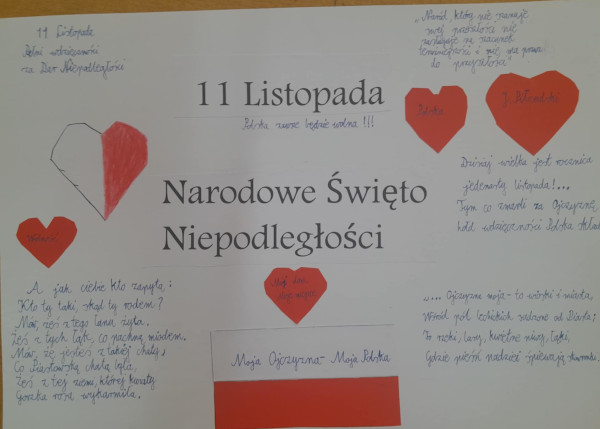 11 Listopada
Pełni wdzięczności
za Dar Niepodległości
"Naród, który nie szanuje
swej przeszłości nie
zasługuje na szacunek
teraźniejszości i nie ma prawa
do przyszłości"
11 Listopada
Polska zawsze będzie wolna!!!
Polska
J. Piłsudski
Narodowe Święto
Niepodległości
Dzisiaj wielka jest rocznica
jedenasty Listopada!...
Tym co zmarli za Ojczyznę,
hołd wdzięczności Polska składa
A jak ciebie kto zapyta:
Kto ty taki, skąd ty rodem?
Mów, żeś z tego łanu, żyta.
Żeś z tych łąk, co pachną miodem.
Mów, że jesteś z takiej chaty,
Co Piastowską chatą była,
Żeś z tej ziemi, której kwiaty
Gorzka rosa wykarmiła.
Moja Ojczyzna - Moja Polska
"... Ojczyzno moja - to wioski i miasta,
Wśród pól lechickich sadzone od Piasta;
To rzeki, lasy, kwietne niwy, łąki,
Gdzie pieśń nadziei śpiewają skowronki.